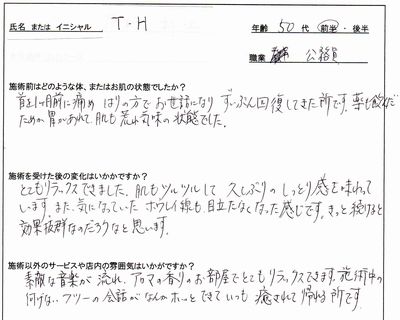 氏名 または イニシャル T・H 年齢 50 代 前半・後半
職業 公務員
施術前はどのような体、またはお肌の状態でしたか?
首を1ヶ月前に痛め はりの方で お世話になり ずいぶん回復してきた所です。薬も飲んだ
ためか 胃があれて、肌も 荒れ気味の状態でした。
施術を受けた後の変化はいかかですか?
とてもリラックスできました。肌もツルツルして 久しぶりの しっとり感を味わって
います。また、気になっていた ホウレイ線も、目立たなくなった感じです。きっと 続けると
効果抜群なのだろうなと思います。
施術以外のサービスや店内の雰囲気はいかがですか?
素敵な音楽が 流れ、アロマの香りのお部屋でとてもリラックスできます。施術中の
何げない フツーの 会話が なんか ホッと できて いつも 癒されて 帰れる 所です。